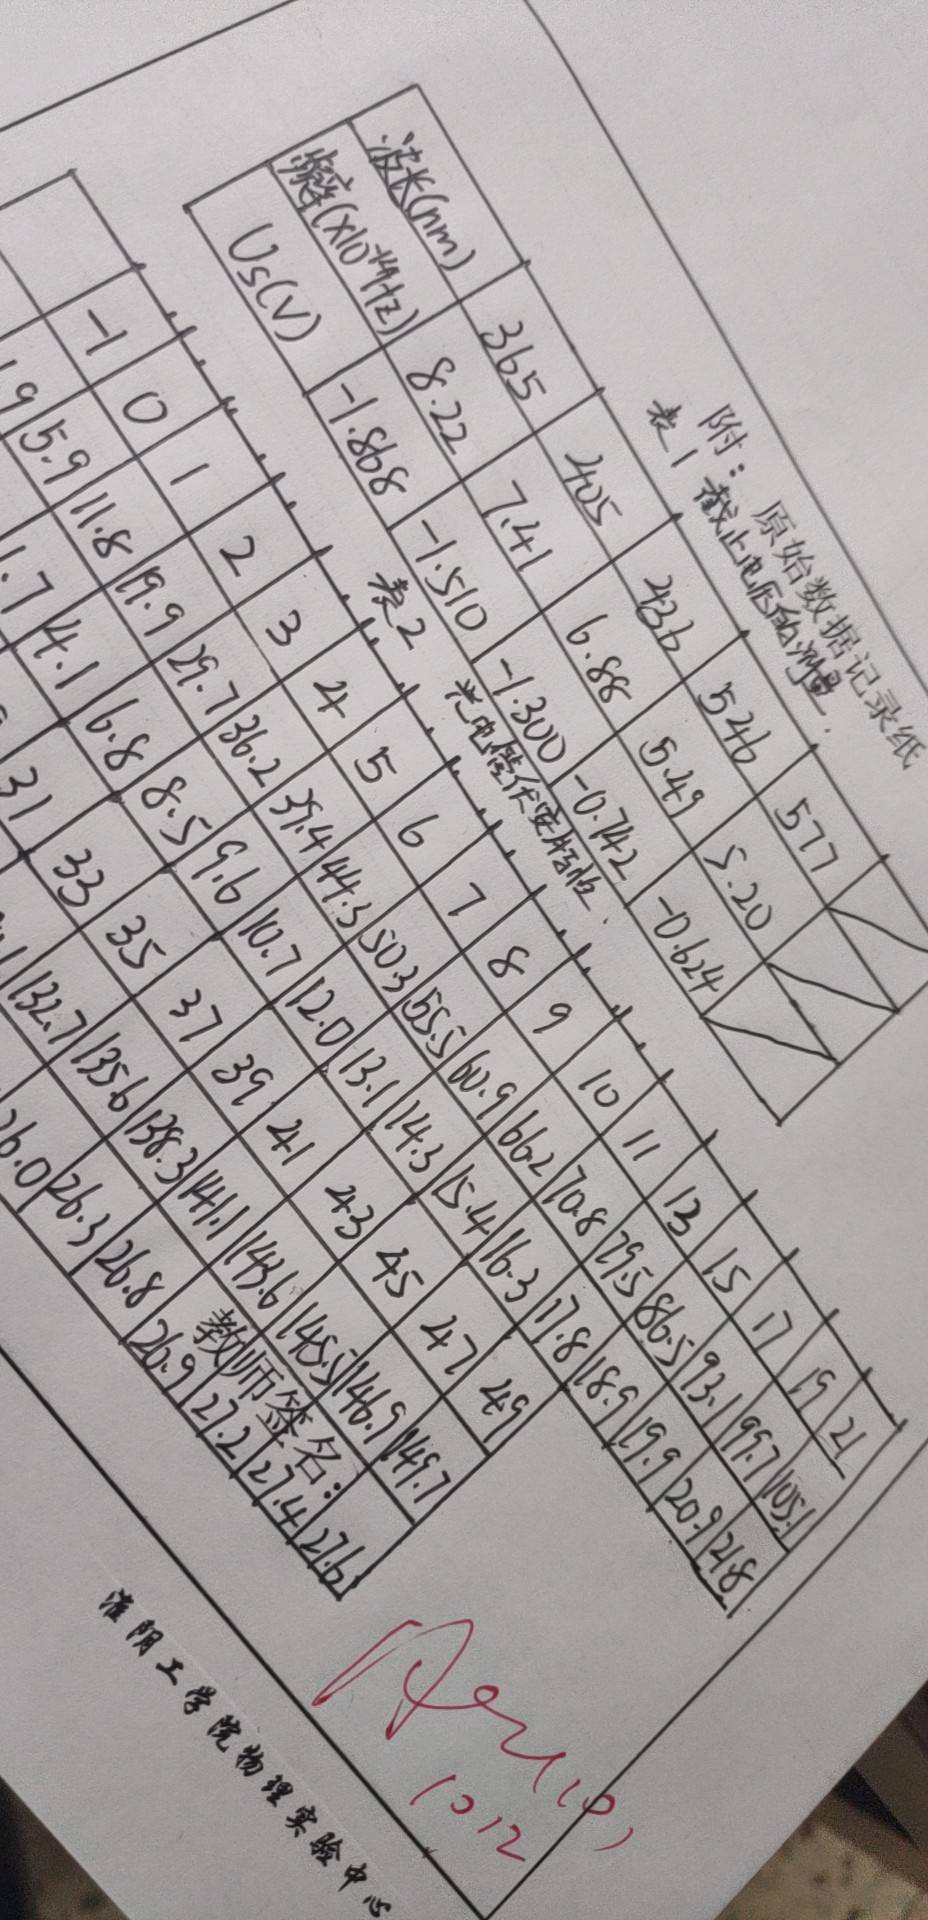 附: 原始数据记录纸
表1 截止电压的测量
波长(nm) 365 405 436 546 577
频率(×10^14Hz) 8.22 7.41 6.88 5.49 5.20
Us(V) -1.868 -1.510 -1.300 -0.742 -0.624
表2 光电管伏安特性
-1 0 1 2 3 4 5 6 7 8 9 10 11 13 15 17 19 21
5.9 11.8 19.9 29.7 36.2 39.4 44.3 50.3 55.5 60.9 66.2 70.8 79.5 86.5 93.1 99.7 105.1
1.7 4.1 6.8 8.5 9.6 10.7 12.0 13.1 14.3 15.4 16.3 17.8 18.9 19.9 20.9 21.8
31 33 35 37 39 41 43 45 47 49
132.7 135.6 138.3 141.1 143.6 145.5 146.9 149.7
26.0 26.3 26.8 26.9 27.2 27.4 27.6
教师签名:
1012
淮阴工学院物理实验中心